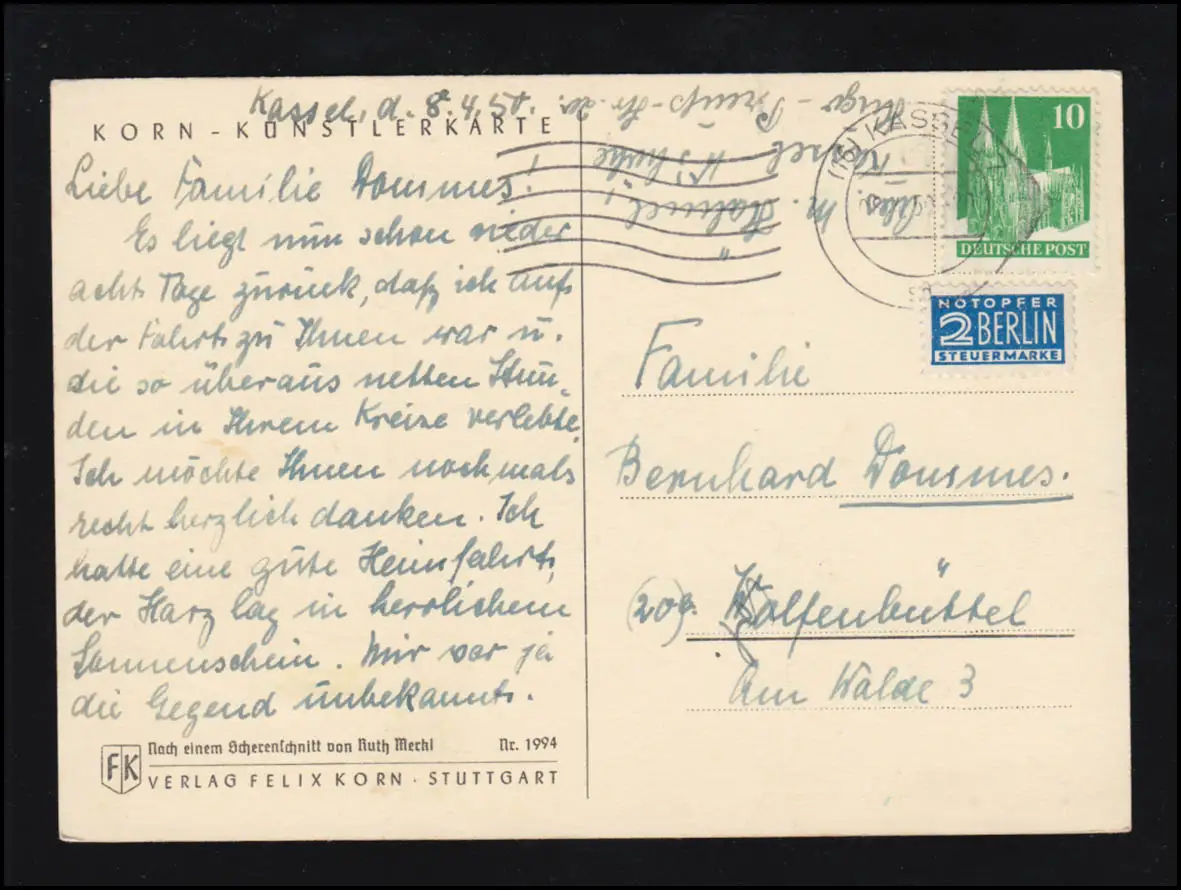 Kassel, d. 8.4.50.
KORN-KÜNSTLERKARTE
Liebe Familie Dommes!
Es liegt nun schon wieder
acht Tage zurück, daß ich auf
der Fahrt zu Ihnen war u.
die so überaus netten Stun-
den in Ihrem Kreise verlebte.
Ich möchte Ihnen nochmals
recht herzlich danken. Ich
hatte eine gute Heimfahrt,
der Harz lag in herrlichem
Sonnenschein. Mir war ja
die Gegend unbekannt.
FK
Nach einem Scherenschnitt von Ruth Merkl Nr. 1994
VERLAG FELIX KORN · STUTTGART
Kassel
(16) KASSEL
10
DEUTSCHE POST
NOTOPFER
2 BERLIN
STEUERMARKE
Familie
Bernhard Dommes.
(20) Wolfenbüttel
Am Walde 3